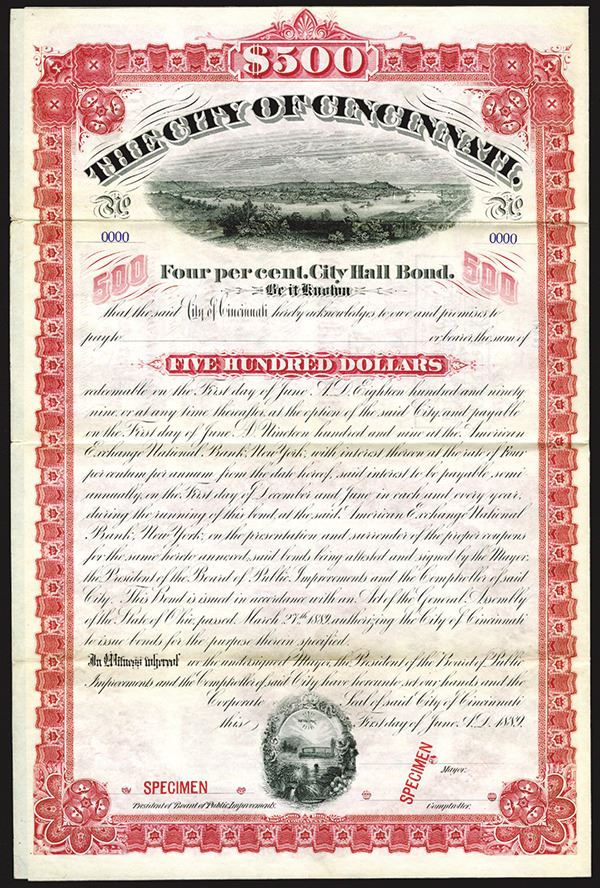 $500
THE CITY OF CINCINNATI.
No No
0000 0000
500 Four per cent. City Hall Bond. 500
Be it Known
that the said City of Cincinnati hereby acknowledges to owe and promises to
pay to or bearer, the sum of
FIVE HUNDRED DOLLARS
redeemable on the First day of June, A.D. Eighteen hundred and ninety
nine, or at any time thereafter, at the option of the said City, and payable
on the First day of June, A.D. Nineteen hundred and nine at the American
Exchange National Bank, New York, with interest thereon at the rate of Four
per centum per annum from the date hereof, said interest to be payable semi
annually, on the First day of December and June in each and every year,
during the running of this bond at the said American Exchange National
Bank, New York, on the presentation and surrender of the proper coupons
for the same hereto annexed, said bonds being attested and signed by the Mayor,
the President of the Board of Public Improvements and the Comptroller of said
City. This Bond is issued in accordance with an Act of the General Assembly
of the State of Ohio, passed March 27th 1889, authorizing the City of Cincinnati
to issue bonds for the purpose therein specified.
In Witness whereof we the undersigned Mayor, the President of the Board of Public
Improvements and the Comptroller of said City have hereunto set our hands and the
Corporate Seal of said City of Cincinnati
this First day of June, A.D. 1889.
Mayor.
SPECIMEN SPECIMEN
President of Board of Public Improvements. Comptroller.